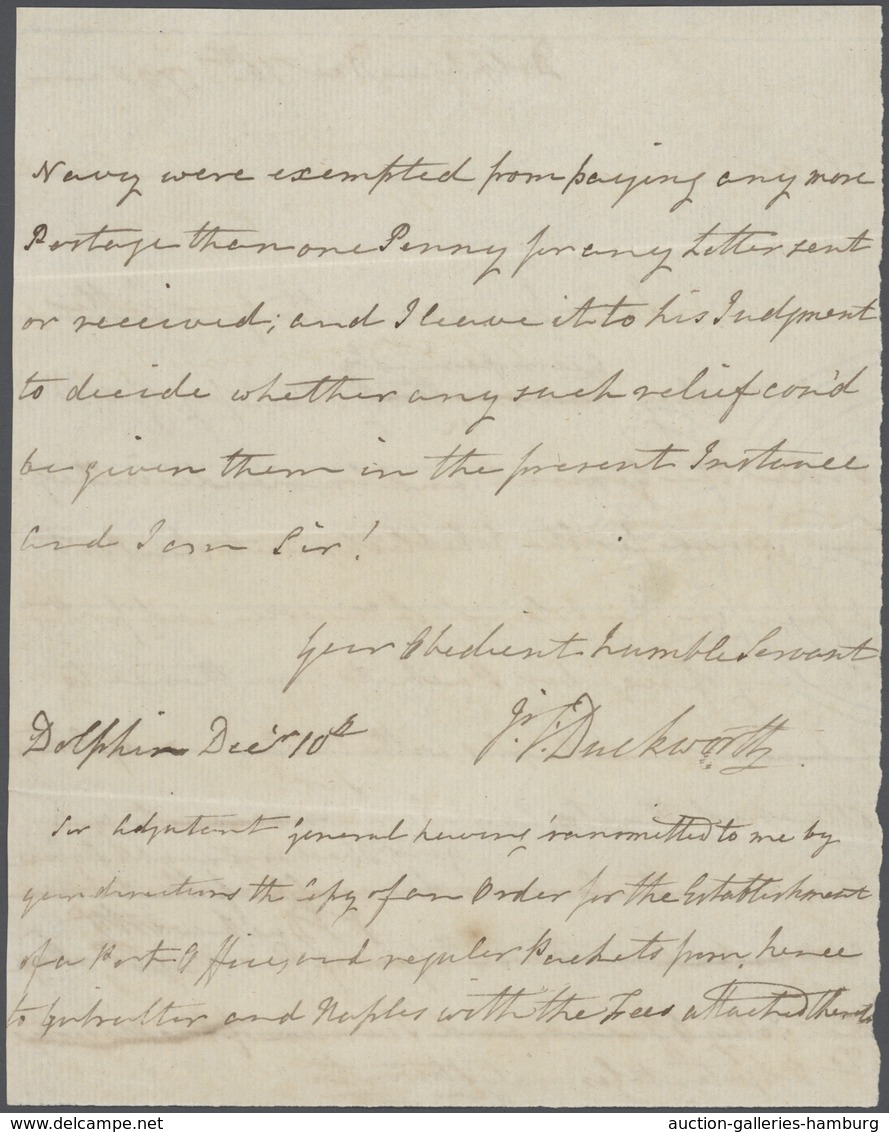 Navy were exempted from paying any more
Postage than one Penny for any Letter sent
or received; and I leave it to his Judgment
to decide whether any such relief cou'd
be given them in the present Instance
and I am Sir!
Your Obedient humble Servant
Dolphin Decr 10th
J. T. Duckworth
Adjutant General having transmitted to me by
your directions the Copy of an Order for the Establishment
of a Post Office, and regular Packets from hence
to Gibralter and Naples with the Fees attached thereto
delcampe.net
auction-galleries-hamburg